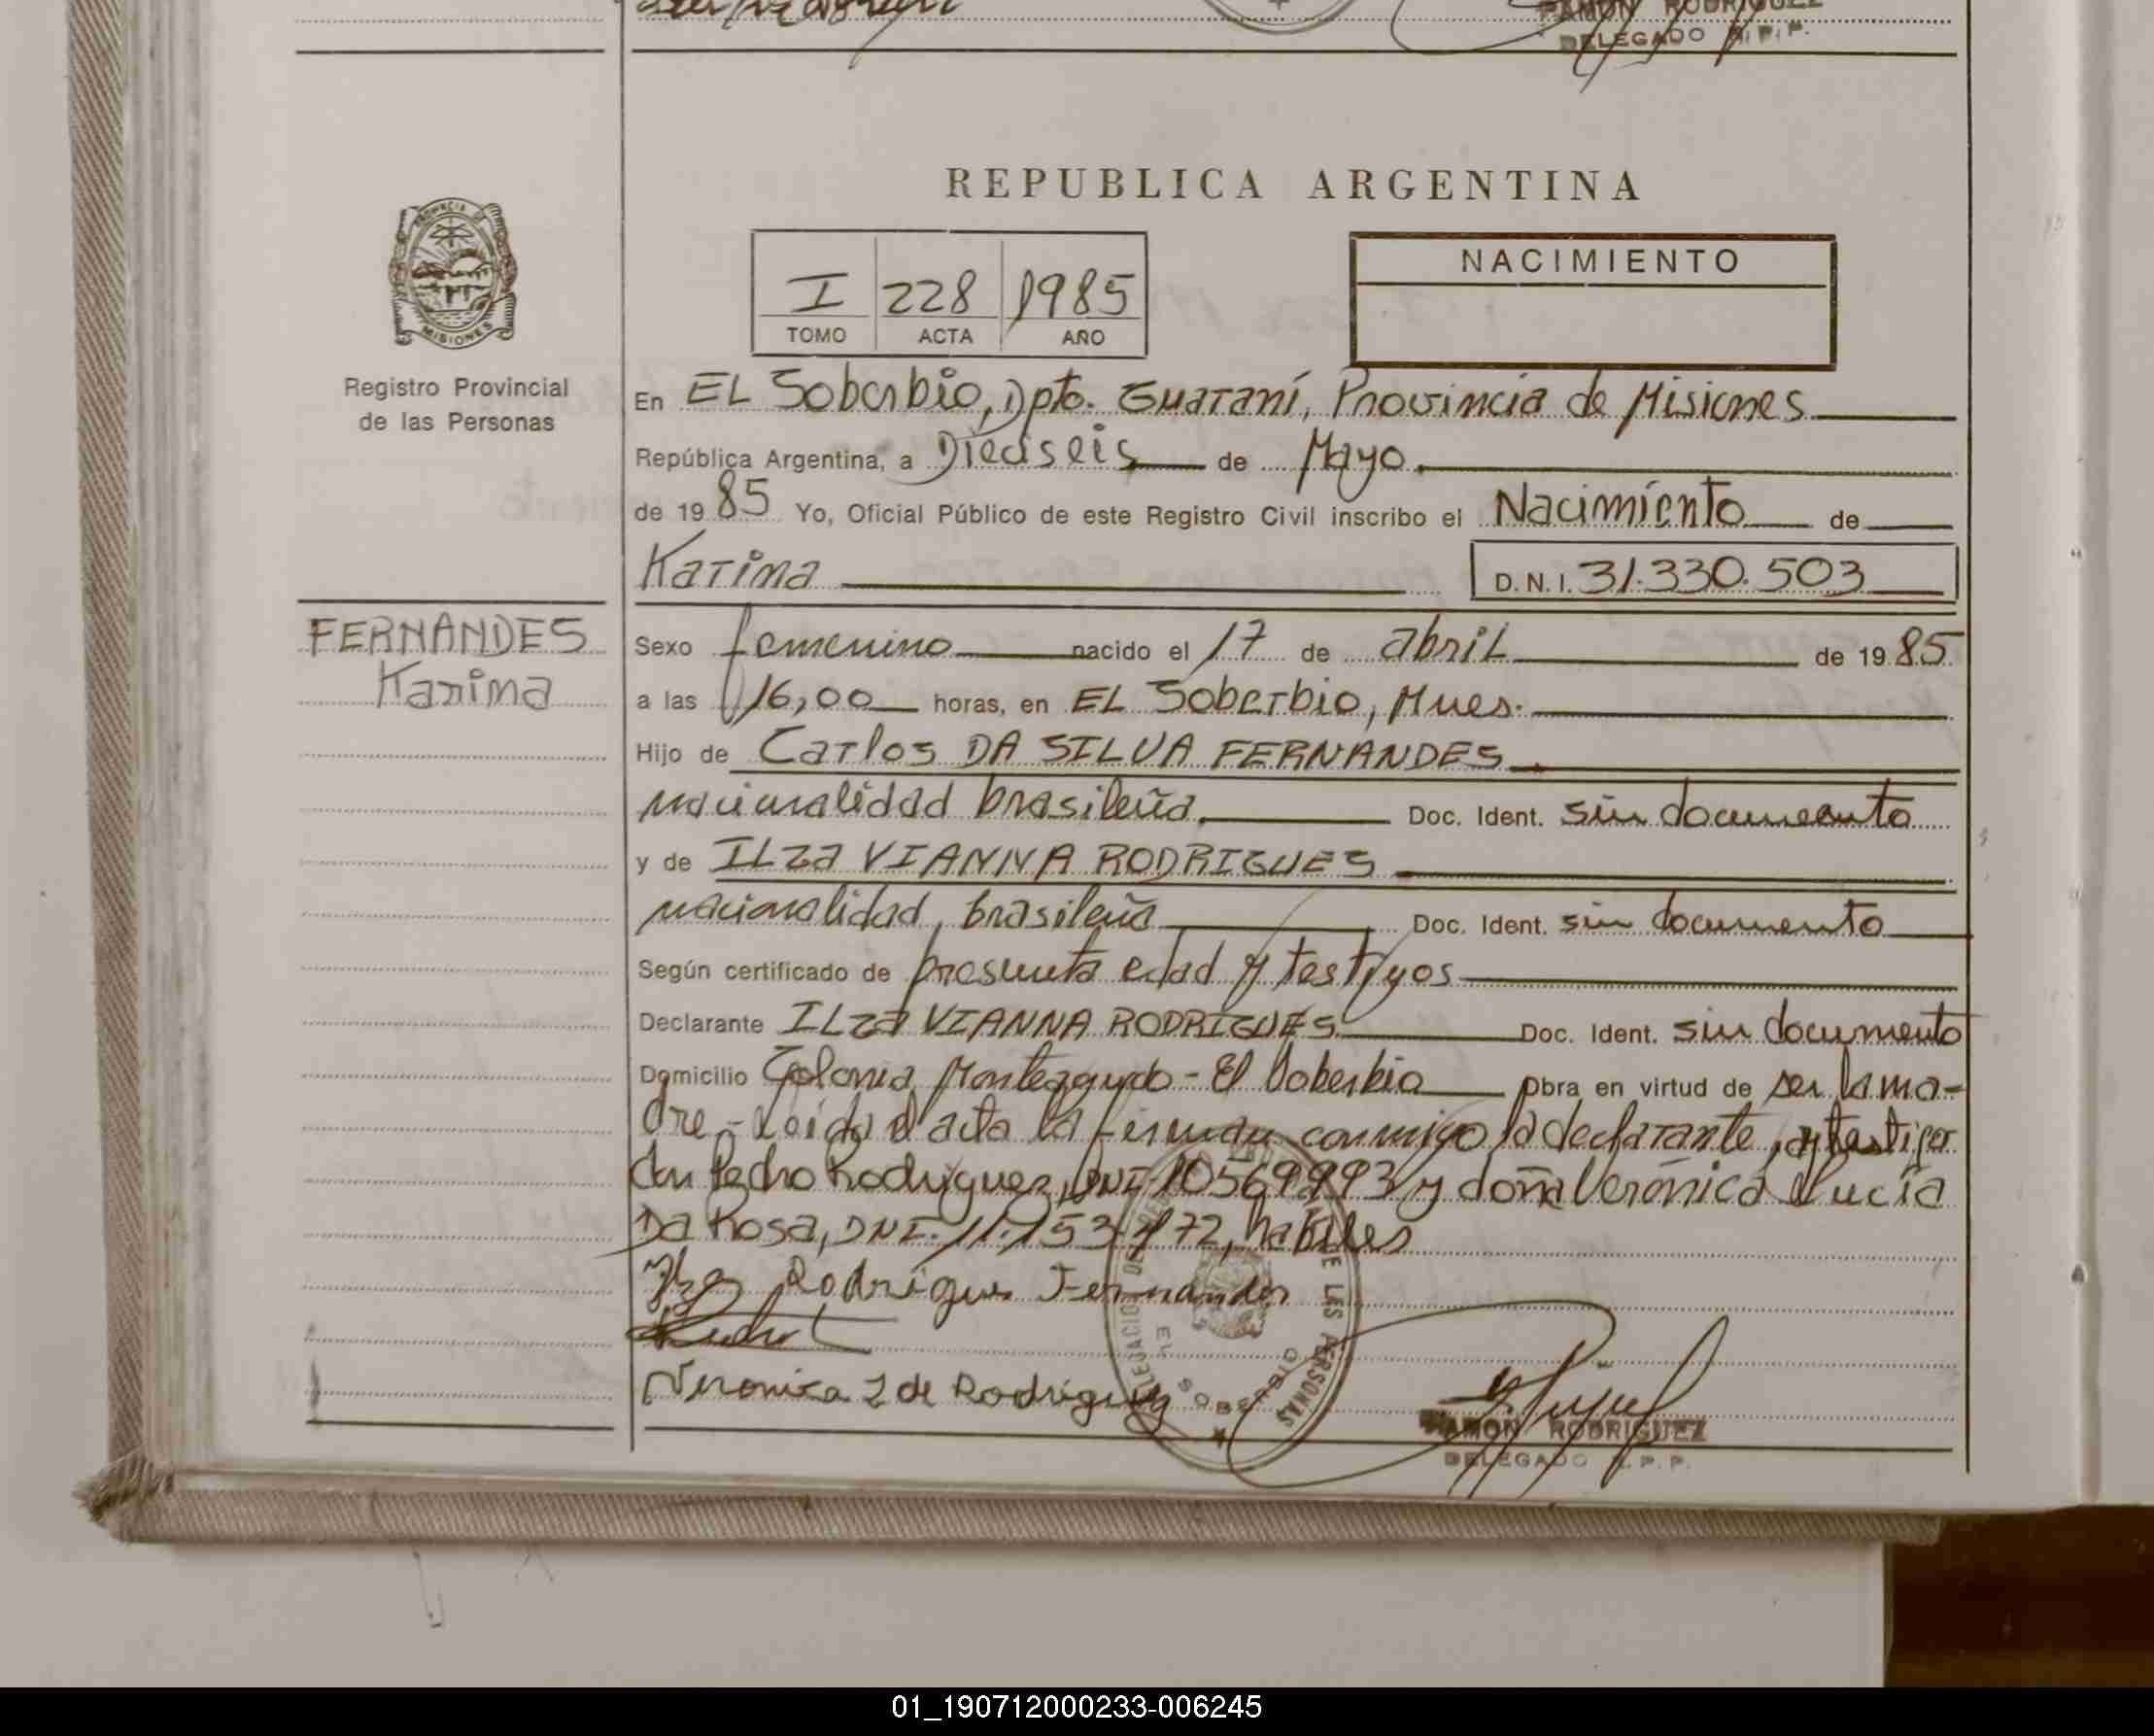 RAMON RODRIGUEZ
DELEGADO R. P. P.
REPUBLICA ARGENTINA
PROVINCIA DE
MISIONES
I 228 1985
TOMO ACTA AÑO
NACIMIENTO
Registro Provincial
de las Personas
En EL Soberbio, Dpto. Guaraní, Provincia de Misiones
República Argentina, a Dieciseis de Mayo
de 1985 Yo, Oficial Público de este Registro Civil inscribo el Nacimiento de
Karina D.N.I. 31.330.503
FERNANDES
Karina
Sexo femenino nacido el 17 de abril de 1985
a las 16,00 horas, en EL Soberbio, Mnes.
Hijo de Carlos DA SILVA FERNANDES
nacionalidad brasileña Doc. Ident. sin documento
y de ILza VIANNA RODRIGUES
nacionalidad brasileña Doc. Ident. sin documento
Según certificado de presunta edad y testigos
Declarante ILza VIANNA RODRIGUES Doc. Ident. sin documento
Domicilio Colonia Monteagudo - El Soberbio Obra en virtud de ser la ma-
dre - Leida el acta la firman conmigo la declarante, y testigos
don Pedro Rodriguez, DNI 10569993 y doña Verónica Lucía
Da Rosa, DNI. 11.153.172, habiles
Rodrigues Fernandes
Veronica L de Rodriguez
EL SOBERBIO
DE LAS PERSONAS
RAMON RODRIGUEZ
DELEGADO R.P.P.
01_190712000233-006245